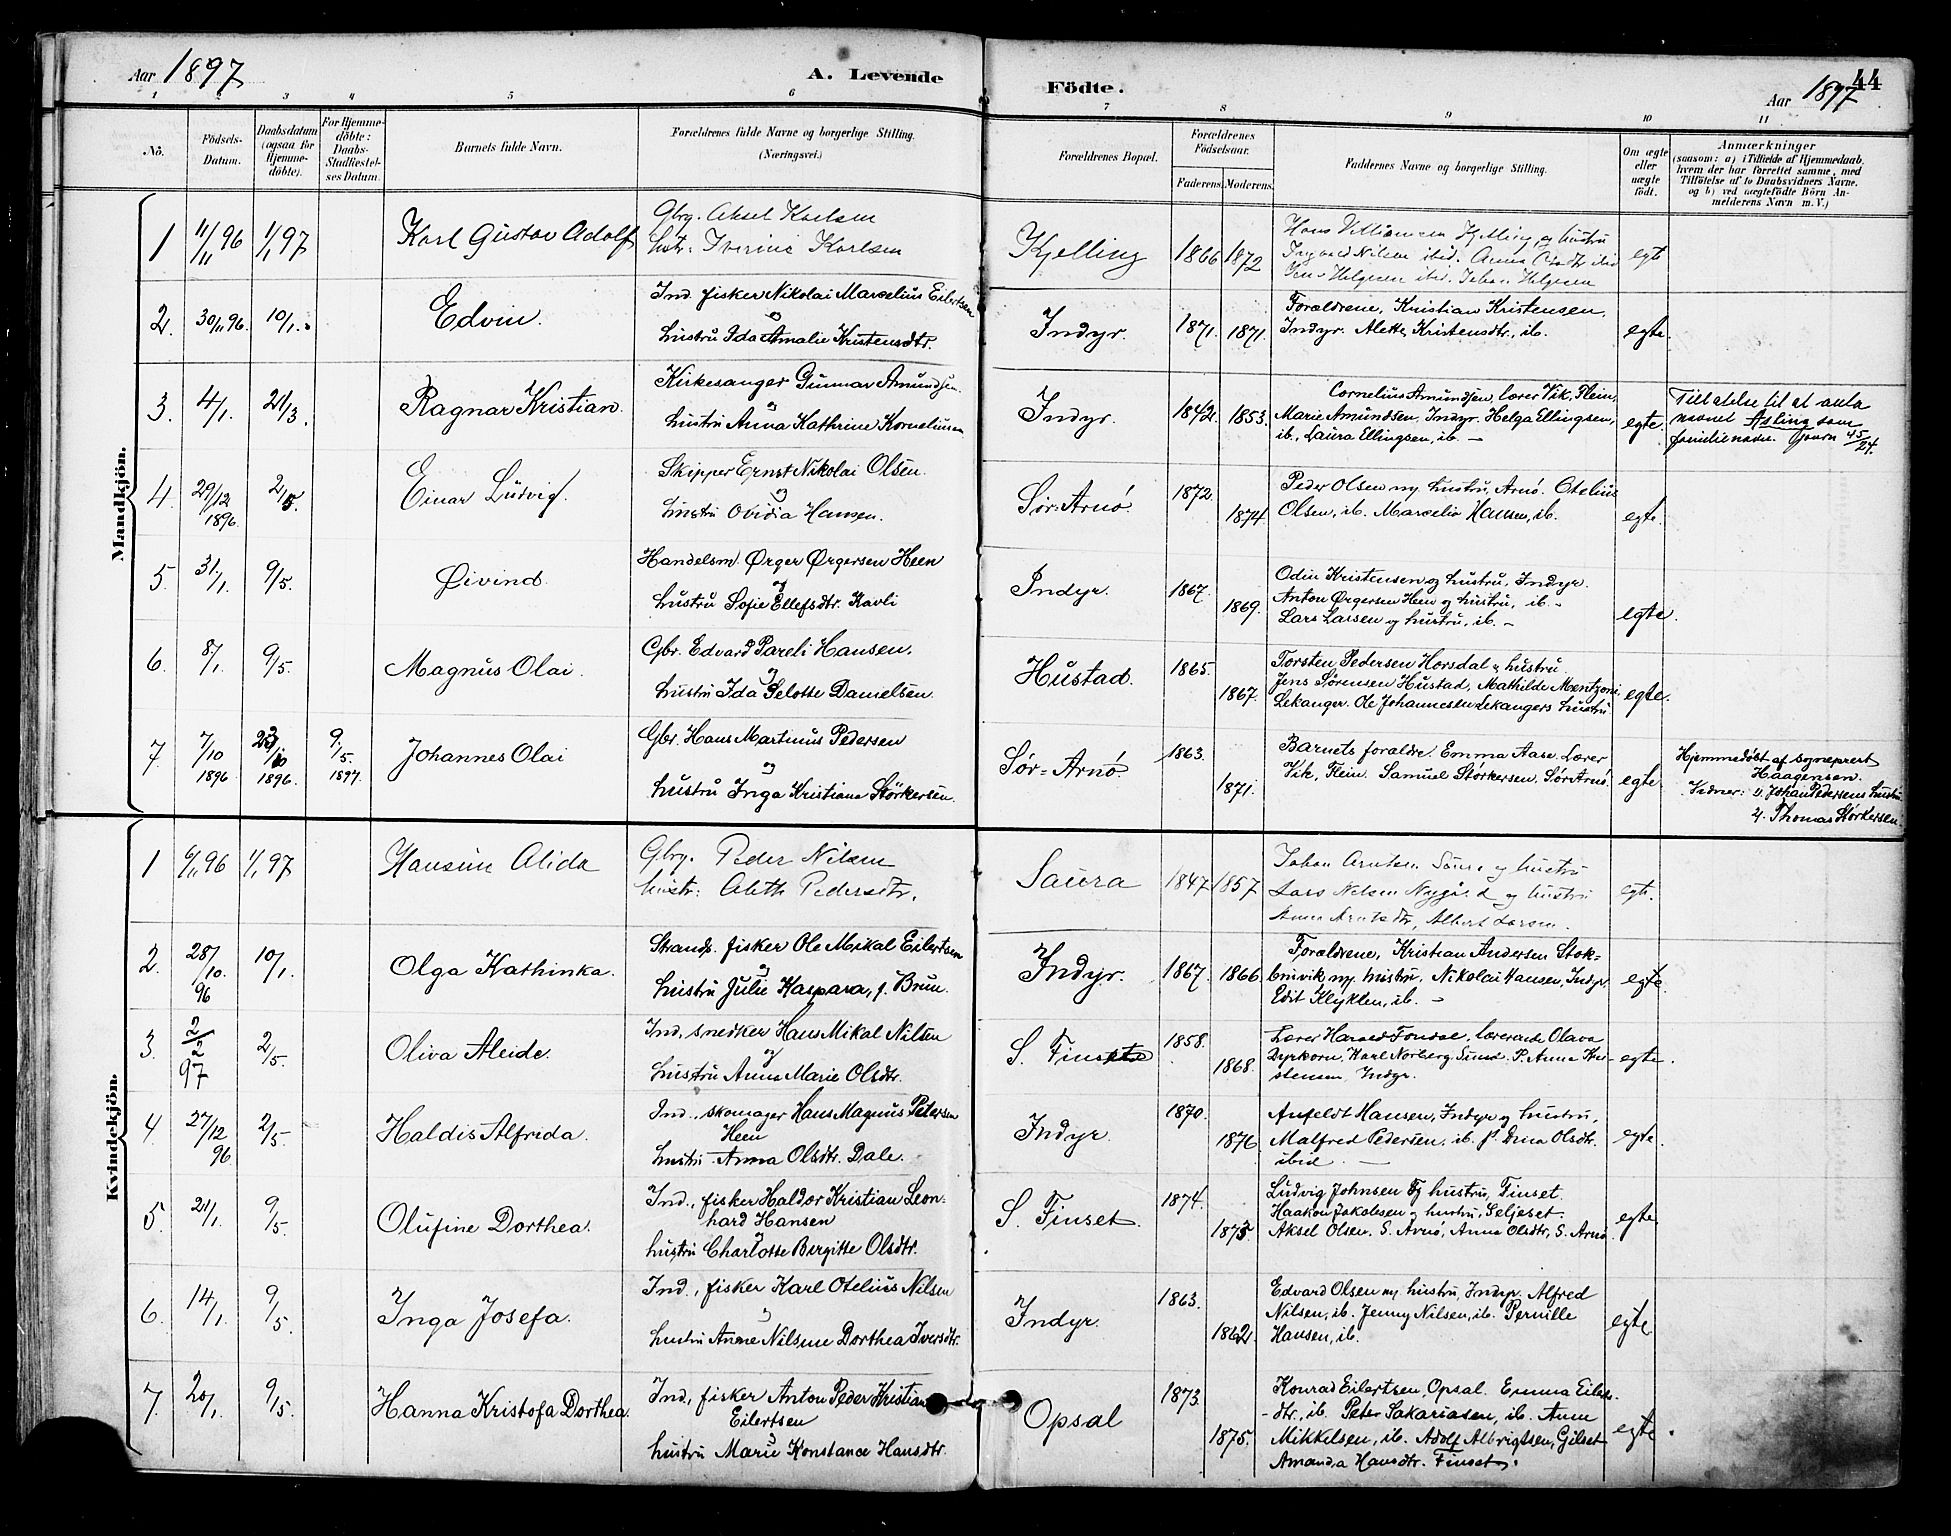 Aar 1897
A. Levende
Födte.
Aar 1897
44
1 2 3 4 5 6 7 8 9 10 11
No.
Födsels-
Datum.
Daabsdatum
(ogsaa for
Hjemme-
döbte).
For Hjemme-
döbte:
Daabs-
Stadfæstel-
ses Datum.
Barnets fulde Navn.
Forældrenes fulde Navne og borgerlige Stilling.
(Næringsvei.)
Forældrenes Bopæl.
Forældrenes
Födselsaar.
Faderens. Moderens.
Faddernes Navne og borgerlige Stilling.
Om ægte
eller
uægte
födt.
Anmærkninger
(saasom: a) i Tilfælde af Hjemmedaab,
hvem der har forrettet samme, med
Tilföielse af to Daabsvidners Navne,
og b) ved uægtefödte Börn An-
melderens Navn m. V.)
Mandkjön.
1 11/11 96 1/1 97
Karl Gustav Adolf
Gbrg. Aksel Karlsen
hstr. Iverine Karlsen
Kjelling
1866 1872
Hans Villiamsen Kjelling og hustru
Nilsen ibid. Anna
Helgesen ibid. Johan Helgesen
egt
2. 30/11 96. 10/1.
Edvin.
Ind. fisker Nikolai Marcelius Eilertsen
og
hustru Ida Amalie Kristensdtr.
Indyr.
1871. 1871.
Forældrene, Kristian Kristensen,
Indyr. Alette Kristensdtr., ib.
egte.
3. 4/1. 21/3.
Ragnar Kristian.
Kirkesanger Gunnar Amundsen.
og
hustru Anna Kathrine Korneliussen
Indyr.
1842. 1853.
Cornelius Amundsen, lærer Vik, Flein,
Marie Amundsen, Indyr. Helga Ellingsen,
ib., Laura Ellingsen, ib. —
egte.
Tillatelse til at anta
navnet Asling som
familienavn. Journ 45/24.
4. 29/12 1896. 2/5.
Einar Ludvig.
Skipper Ernst Nikolai Olsen.
og
hustru Ovidia Hansen.
Sör-Arnö.
1872. 1874.
Peder Olsen og hustru, Arnö. Otelius
Olsen, ib. Marcelia Hansen, ib.
egte.
5. 31/1. 9/5.
Øivind.
Handelsm. Ørger Ørgersen Heen
og
hustru Sofie Ellefsdtr. Kavli
Indyr.
1867. 1869.
Odin Kristensen og hustru, Indyr.
Anton Ørgersen Heen og hustru, ib. -
Lars Larsen og hustru, ib. -
egte.
6. 8/1 9/5.
Magnus Olai.
Gbr. Edvard Pareli Hansen.
og
hustru Ida Selotte Danielsen.
Hustad.
1865. 1867.
Torsten Pedersen Horsdal og hustru
Jens Sörensen Hustad, Mathilde Mentzoni
Lekanger. Ole Johannesen Lekangers hustru
egte.
7. 7/10 1896. 23/10 1896. 9/5. 1897.
Johannes Olai
Gbr. Hans Martinus Pedersen
og
hustru Inga Kristiana Störkersen.
Sör-Arnö.
1863. 1871.
Barnets foraldre. Emma Aase. Lærer
Vik, Flein. Samuel Störkersen, Sör Arnö.
egte
Hjemmedöbt af sogneprest
Haagensen.
Vidner: Johan Pedersens hustru
4. Thomas Störkersen.
Kvindekjön.
1 6/11 96 1/1 97
Hansine Alida
Gbrg. Peder Nilsen
hustr: Aleth Pedersdtr.
Saura
1847 1857
Johan Arntsen Saura og hustru
Lars Nilsen Nygård og hustru
Anna Arntsdtr, Albert Larsen.
egt.
2. 28/10. 96 10/1.
Olga Kathinka.
Strands. fisker Ole Mikal Eilertsen
og
hustru Julie Kaspara, f. Brun.
Indyr.
1867. 1866.
Forældrene, Kristian Andersen Stok-
og hustru, Nikolai Hansen, Indyr.
Edit Klyklen, ib. -
egte.
3. 2/2 97 2/5.
Oliva Aleide.
Ind., snedker Hans Mikal Nilsen
og
hustru Anna Marie Olsdtr.
S. Finset
1858. 1868.
Lærer Harald Fondal, lærerinde Olava
Dyrkorn, Karl Norberg, Sund. P. Anna Kri-
stensen, Indyr.
egte.
4. 27/12 96. 2/5.
Haldis Alfrida.
Ind., skomager Hans Magnus Petersen
Heen
hustru Anna Olsdtr. Dale.
Indyr.
1870. 1876.
Anfeldt Hansen, Indyr og hustru,
Malfred Pedersen, ib. P. Dina Olsdtr.
ibid. —
egte.
5. 21/1. 9/5.
Olufine Dorthea.
Ind., fisker Haldor Kristian Leon-
hard Hansen
og
hustru Charlotte Bergitte Olsdtr.
S. Finset.
1874. 1875.
Ludvig Johnsen og hustru, Finset.
Haakon Jakobsen og hustru, Seljeset.
Aksel Olsen. S. Arnö, Anna Olsdtr, S. Arnö.
egte.
6. 14/1. 9/5.
Inga Josefa.
Ind., fisker Karl Otelius Nilsen
og
hustru Anne Nilsine Dorthea Iversdtr.
Indyr.
1863. 1862.
Edvard Olsen og hustru, Indyr. Alfred
Nilsen, ib. Jenny Nilsen, ib. Pernille
Hansen, ib.
egte.
7. 20/1. 9/5.
Hanna Kristofa Dorthea.
Ind., fisker Anton Peder Kristian
Eilertsen
og
hustru Marie Konstance Hansdtr.
Opsal
1873. 1875.
Konrad Eilertsen, Opsal. Emma Eilerts-
dtr., ib. Peter Sakariasen, ib. Anne
Mikkelsen, ib. Adolf Albrigtsen, Gilset
Amanda Hansdtr. Finset.
egte.